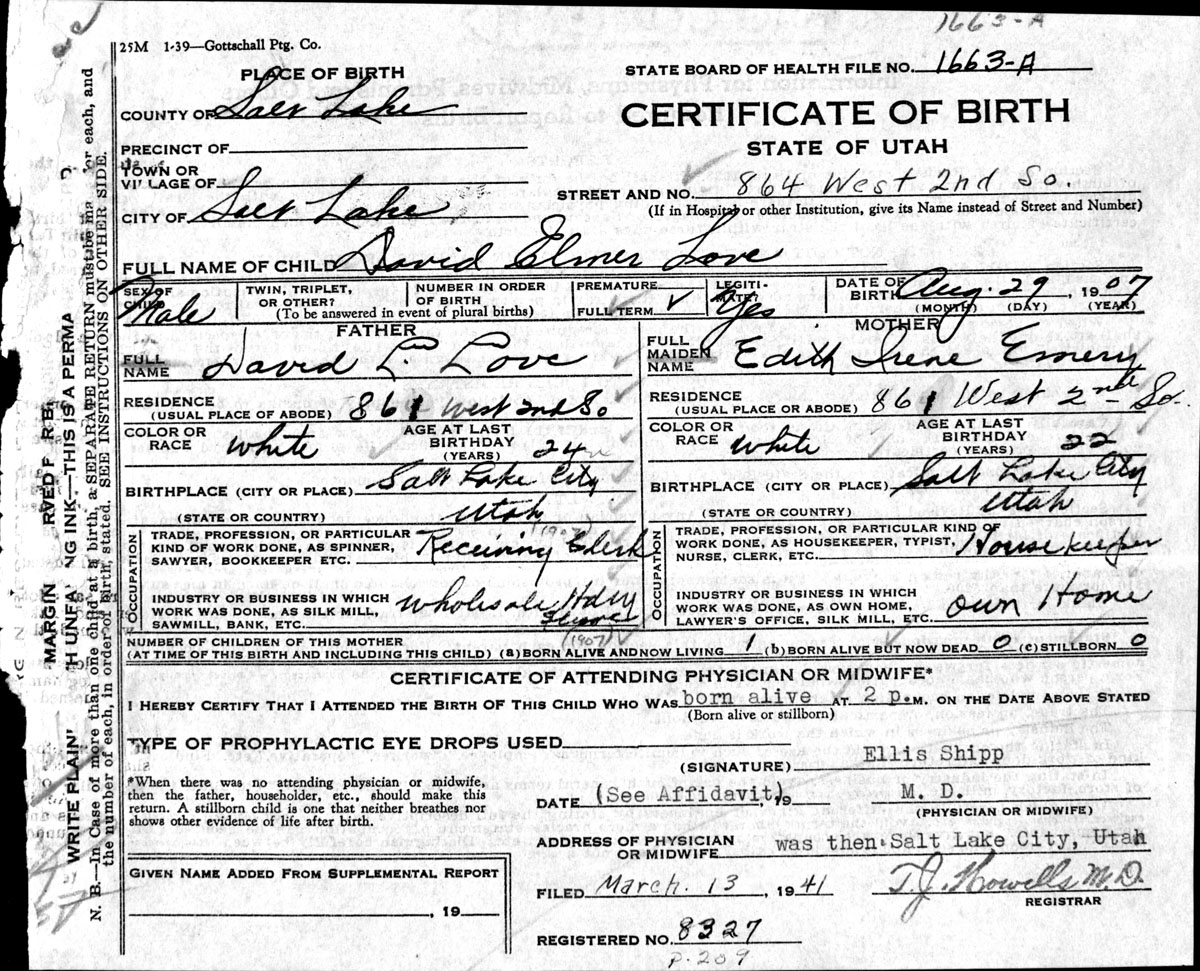 1663-A
25M 1-39—Gottschall Ptg. Co.
STATE BOARD OF HEALTH FILE NO. 1663-A
PLACE OF BIRTH
COUNTY OF Salt Lake
CERTIFICATE OF BIRTH
STATE OF UTAH
PRECINCT OF
TOWN OR
VILLAGE OF
STREET AND NO. 864 West 2nd So.
(If in Hospital or other Institution, give its Name instead of Street and Number)
CITY OF Salt Lake
FULL NAME OF CHILD David Elmer Love
SEX OF CHILD Male
TWIN, TRIPLET, OR OTHER?
NUMBER IN ORDER OF BIRTH
(To be answered in event of plural births)
PREMATURE
FULL TERM ✓
LEGITIMATE? Yes
DATE OF BIRTH Aug. 29, 1907
(MONTH) (DAY) (YEAR)
FATHER
FULL NAME David L. Love
RESIDENCE
(USUAL PLACE OF ABODE) 861 West 2nd So
COLOR OR RACE White
AGE AT LAST BIRTHDAY (YEARS) 24
BIRTHPLACE (CITY OR PLACE) Salt Lake City
(STATE OR COUNTRY) Utah
(1907)
OCCUPATION
TRADE, PROFESSION, OR PARTICULAR
KIND OF WORK DONE, AS SPINNER,
SAWYER, BOOKKEEPER ETC. Receiving Clerk
INDUSTRY OR BUSINESS IN WHICH
WORK WAS DONE, AS SILK MILL,
SAWMILL, BANK, ETC. Wholesale
(1907)
MOTHER
FULL MAIDEN NAME Edith Irene Emery
RESIDENCE
(USUAL PLACE OR ABODE) 861 West 2nd So.
COLOR OR RACE White
AGE AT LAST BIRTHDAY (YEARS) 22
BIRTHPLACE (CITY OR PLACE) Salt Lake City
(STATE OR COUNTRY) Utah
OCCUPATION
TRADE, PROFESSION, OR PARTICULAR KIND OF
WORK DONE, AS HOUSEKEEPER, TYPIST,
NURSE, CLERK, ETC. Housekeeper
INDUSTRY OR BUSINESS IN WHICH
WORK WAS DONE, AS OWN HOME,
LAWYER'S OFFICE, SILK MILL, ETC. Own Home
NUMBER OF CHILDREN OF THIS MOTHER
(AT TIME OF THIS BIRTH AND INCLUDING THIS CHILD) (a) BORN ALIVE AND NOW LIVING 1 (b) BORN ALIVE BUT NOW DEAD 0 (c) STILLBORN 0
CERTIFICATE OF ATTENDING PHYSICIAN OR MIDWIFE*
I HEREBY CERTIFY THAT I ATTENDED THE BIRTH OF THIS CHILD WHO WAS born alive AT 2 p.M. ON THE DATE ABOVE STATED
(Born alive or stillborn)
TYPE OF PROPHYLACTIC EYE DROPS USED
*When there was no attending physician or midwife,
then the father, householder, etc., should make this
return. A stillborn child is one that neither breathes nor
shows other evidence of life after birth.
(SIGNATURE) Ellis Shipp
DATE (See Affidavit) 19
M. D.
(PHYSICIAN OR MIDWIFE)
ADDRESS OF PHYSICIAN
OR MIDWIFE was then Salt Lake City, Utah
GIVEN NAME ADDED FROM SUPPLEMENTAL REPORT
, 19
FILED March. 13, 1941
T. J. Howells M.D.
REGISTRAR
REGISTERED NO. 8327
p. 209
MARGIN RVED F R B
WRITE PLAIN TH UNFA NG INK—THIS IS A PERMA
N. B.—In Case of more than one child at a birth, a SEPARATE RETURN must be ma for each, and
the number of each, in order of birth, stated. SEE INSTRUCTIONS ON OTHER SIDE.